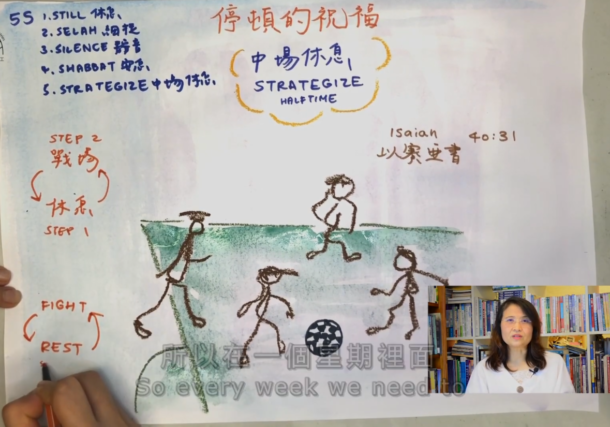 停頓的祝福
5S 1. STILL 休息
2. SELAH 細提
3. SILENCE 靜音
4. SHABBAT 安息
5. STRATEGIZE 中場休息
中場休息
STRATEGIZE
HALFTIME
Isaiah 40:31
以賽亞書
STEP 2
戰場
休息
STEP 1
FIGHT
REST
所以在一個星期裡面
So every week we need to